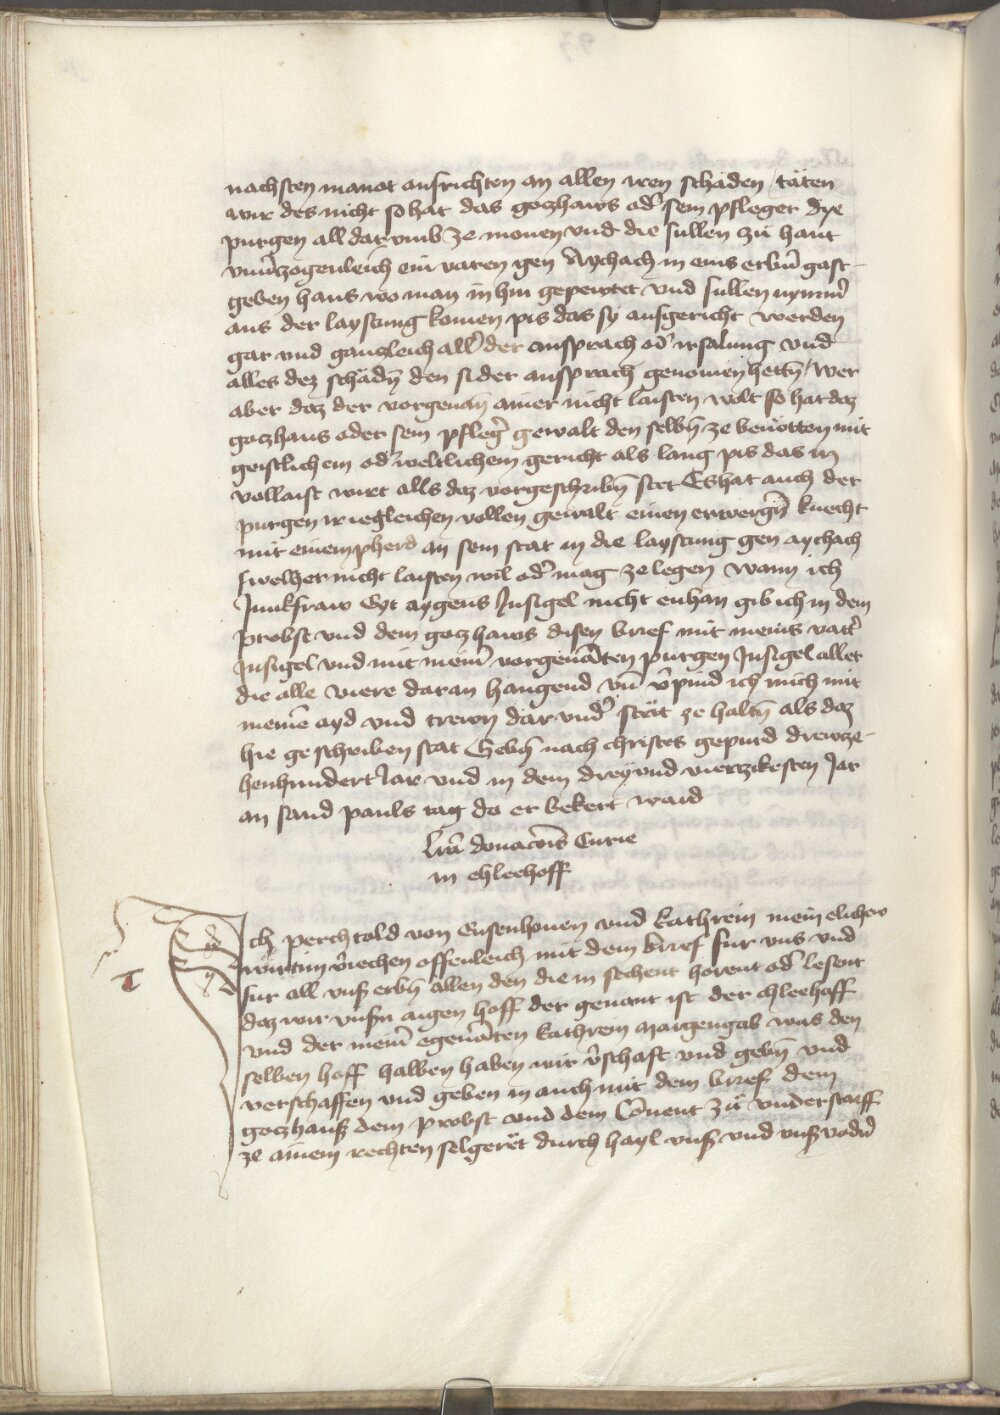 nachsten manot ausrichten an allen iren schaden / täten
wir des nicht so hat das goczhaws od̉ sein pfleger dye
purgen all dar vmb ze monen vnd die sullen zu hant
vnu̓czogenleich ein varen gen Aychach in eins erbn̄ gast-
geben haus wo man in hin gepewtet vnd sullen nymm̉
aus der laystung komen pis das sy ausgericht werden
gar vnd ganczleich all̉ der ansprach od̉ irsalung vnd
alles dez schadn̄ den si der ansprach genomen hettn̄ / wer
aber daz der vorgenan̄ ainer nicht laisten wolt so hat daz
goczhaus oder sein pfleg̉ gewalt den selbn̄ ze benötten mit
geistlichem od̉ weltlichem gericht als lang pis das in
vollaist wirt alls daz vorgeschribn̄ stet Es hat auch der
purgen ir iegleichen vollen gewalt einen erbergn̄ knecht
mit einem pherd an sein stat in die laystung gen aychach
swelher nicht laisten wil od̉ mag ze legen wann ich
Junkfraw Eyt aygens Insigel nicht enhan gib ich in dem
Probst vnd dem goczhaws disen brief mit meins vatt̉
Insigel vnd mit mein̉ vorgenāten purgen Insigel aller
die alle viere daran hangend vn̄ v̉pind ich mich mit
meinē ayd vnd trewn dar vnd̉ stät ze haltn̄ als daz
hie geschriben stat Gebn̄ nach christes gepurd drewze-
henhundert Jar vnd in dem drey vnd vierczikesten Jar
an sand pauls tag da er bekert ward
Lrā donacōis Curie
in chleehoff
Ich perchtold von Eusenhouen vnd kathrein mein elicher
wirtinn v̉iechen offenleich mit dem brief fur vns vnd
fur all vnß erbn̄ allen den die in sechent horent od̉ lesent
daz wir vnsn̄ aigen hoff der genant ist der chleehoff
vnd der mein̉ egenāten kathrein margengab was den
selben hoff halben haben wir v̉schaft vnd gebn̄ vnd
verschaffen vnd geben in auch mit dem brief dem
goczhauß dem Probst vnd dem Cōuent zu vnderstarff
ze ainem rechten selgerët durch hayl vnß vnd vnß vodn̉